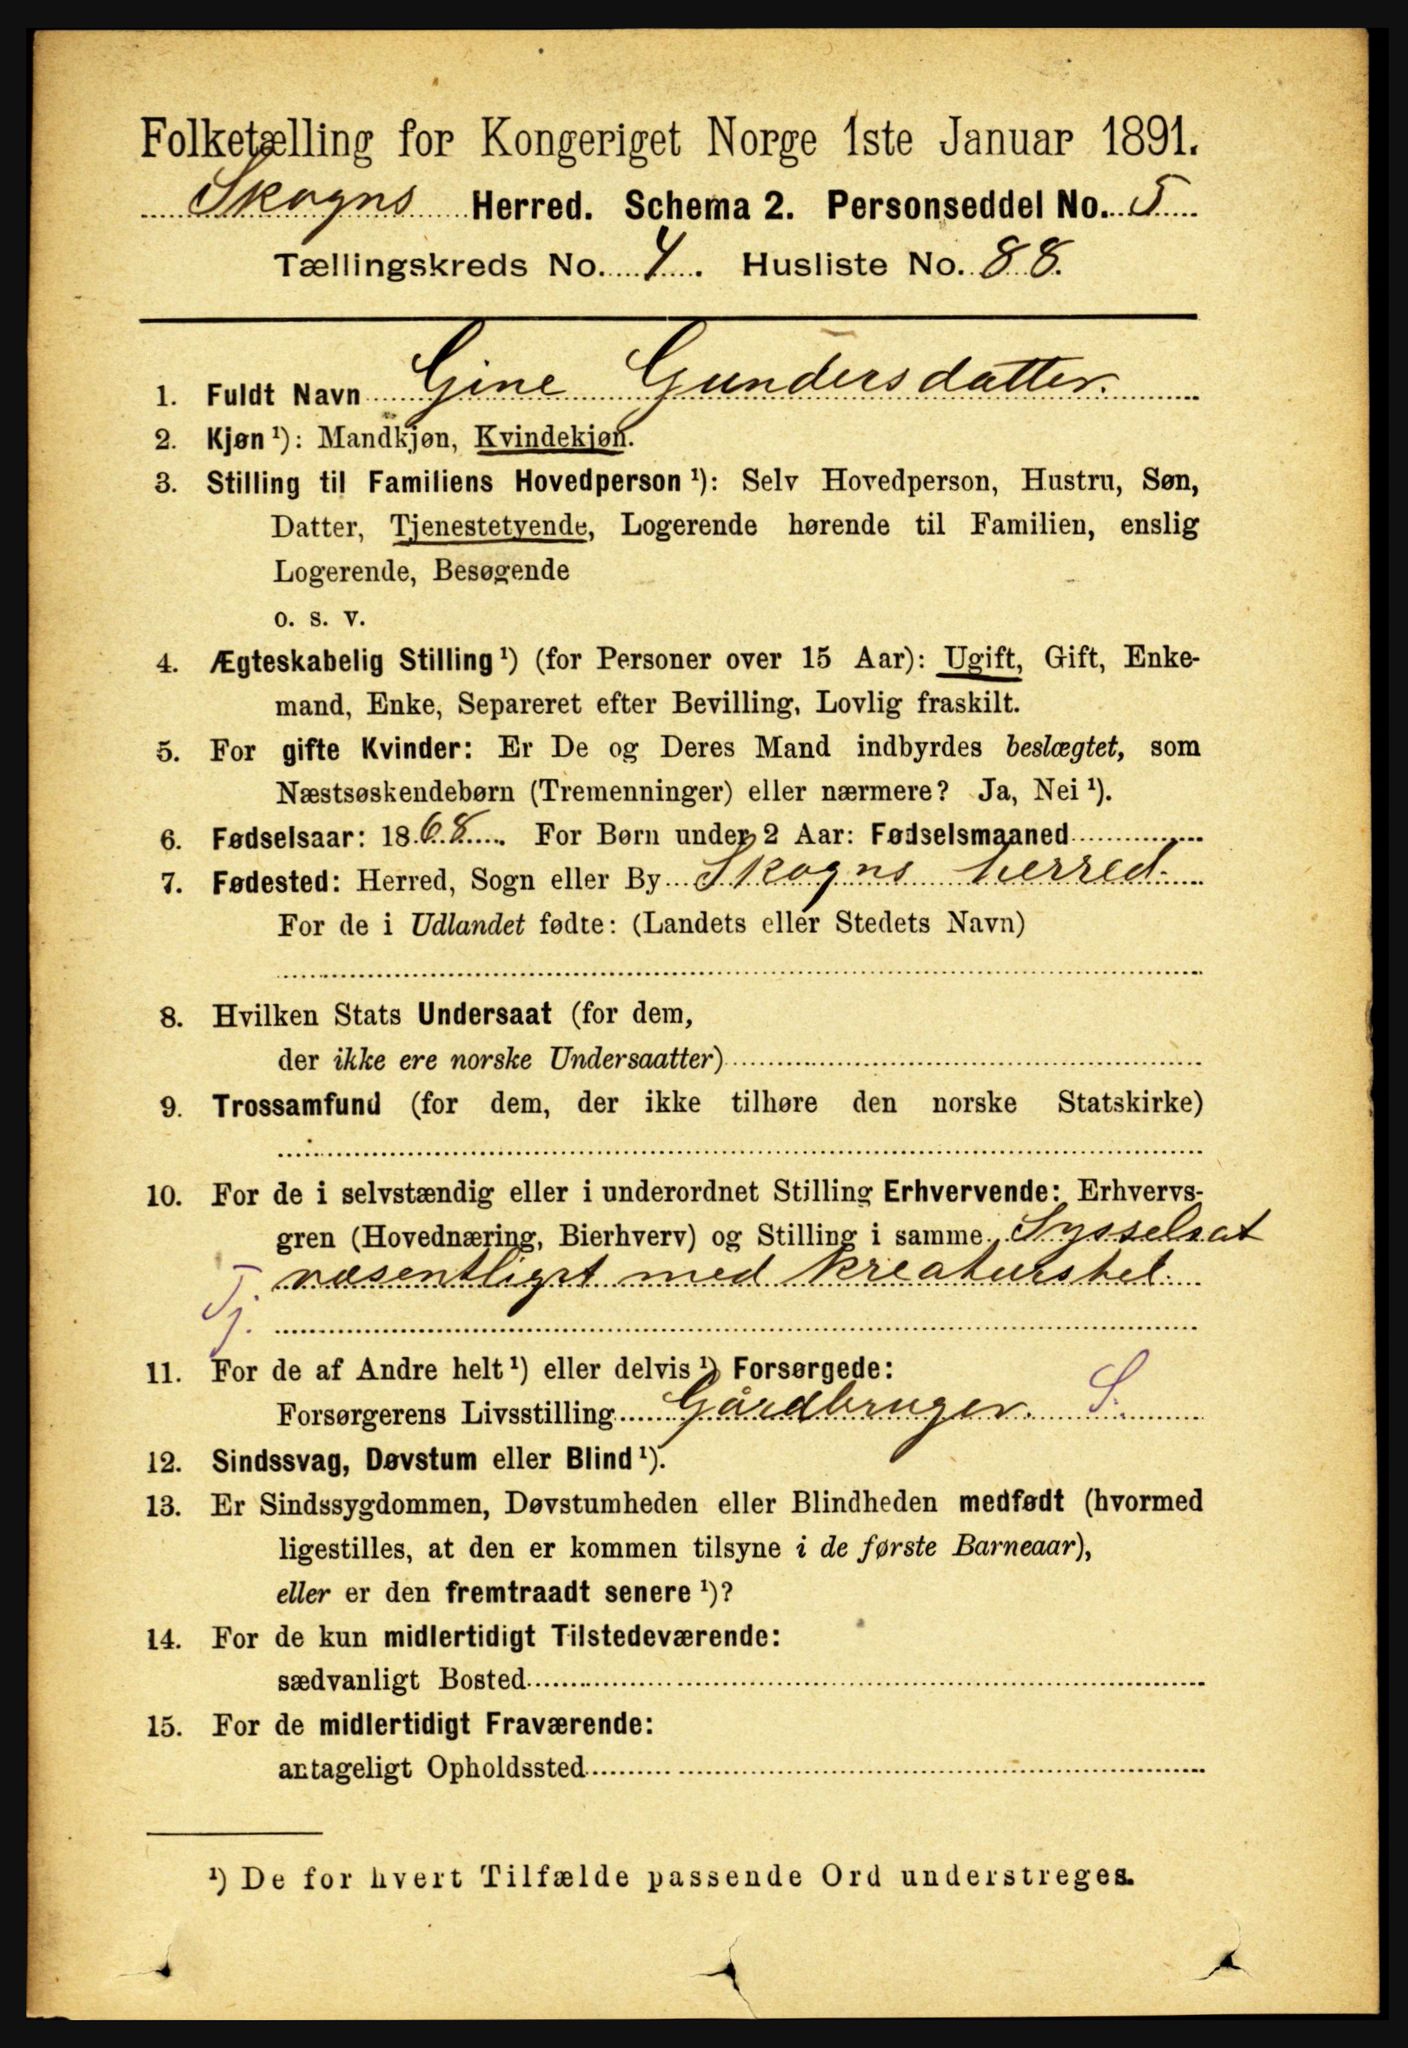 Folketælling for Kongeriget Norge 1ste Januar 1891.
Skogns Herred. Schema 2. Personseddel No. 5
Tællingskreds No. 4. Husliste No. 88.
1. Fuldt Navn Gine Gundersdatter.
2. Kjøn ¹): Mandkjøn, Kvindekjøn.
3. Stilling til Familiens Hovedperson ¹): Selv Hovedperson, Hustru, Søn,
Datter, Tjenestetyende, Logerende hørende til Familien, enslig
Logerende, Besøgende
o. s. v.
4. Ægteskabelig Stilling ¹) (for Personer over 15 Aar): Ugift, Gift, Enke-
mand, Enke, Separeret efter Bevilling, Lovlig fraskilt.
5. For gifte Kvinder: Er De og Deres Mand indbyrdes beslægtet, som
Næstsøskendebørn (Tremenninger) eller nærmere? Ja, Nei ¹).
6. Fødselsaar: 1868. For Børn under 2 Aar: Fødselsmaaned
7. Fødested: Herred, Sogn eller By Skogns herred.
For de i Udlandet fødte: (Landets eller Stedets Navn)
8. Hvilken Stats Undersaat (for dem,
der ikke ere norske Undersaatter)
9. Trossamfund (for dem, der ikke tilhøre den norske Statskirke)
10. For de i selvstændig eller i underordnet Stilling Erhvervende: Erhvervs-
gren (Hovednæring, Bierhverv) og Stilling i samme Sysselsat
væsentligst med kreaturstel.
Tj.
11. For de af Andre helt ¹) eller delvis ¹) Forsørgede:
Forsørgerens Livsstilling Gårdbruger. S.
12. Sindssvag, Døvstum eller Blind ¹).
13. Er Sindssygdommen, Døvstumheden eller Blindheden medfødt (hvormed
ligestilles, at den er kommen tilsyne i de første Barneaar),
eller er den fremtraadt senere ¹)?
14. For de kun midlertidigt Tilstedeværende:
sædvanligt Bosted
15. For de midlertidigt Fraværende:
antageligt Opholdssted
¹) De for hvert Tilfælde passende Ord understreges.